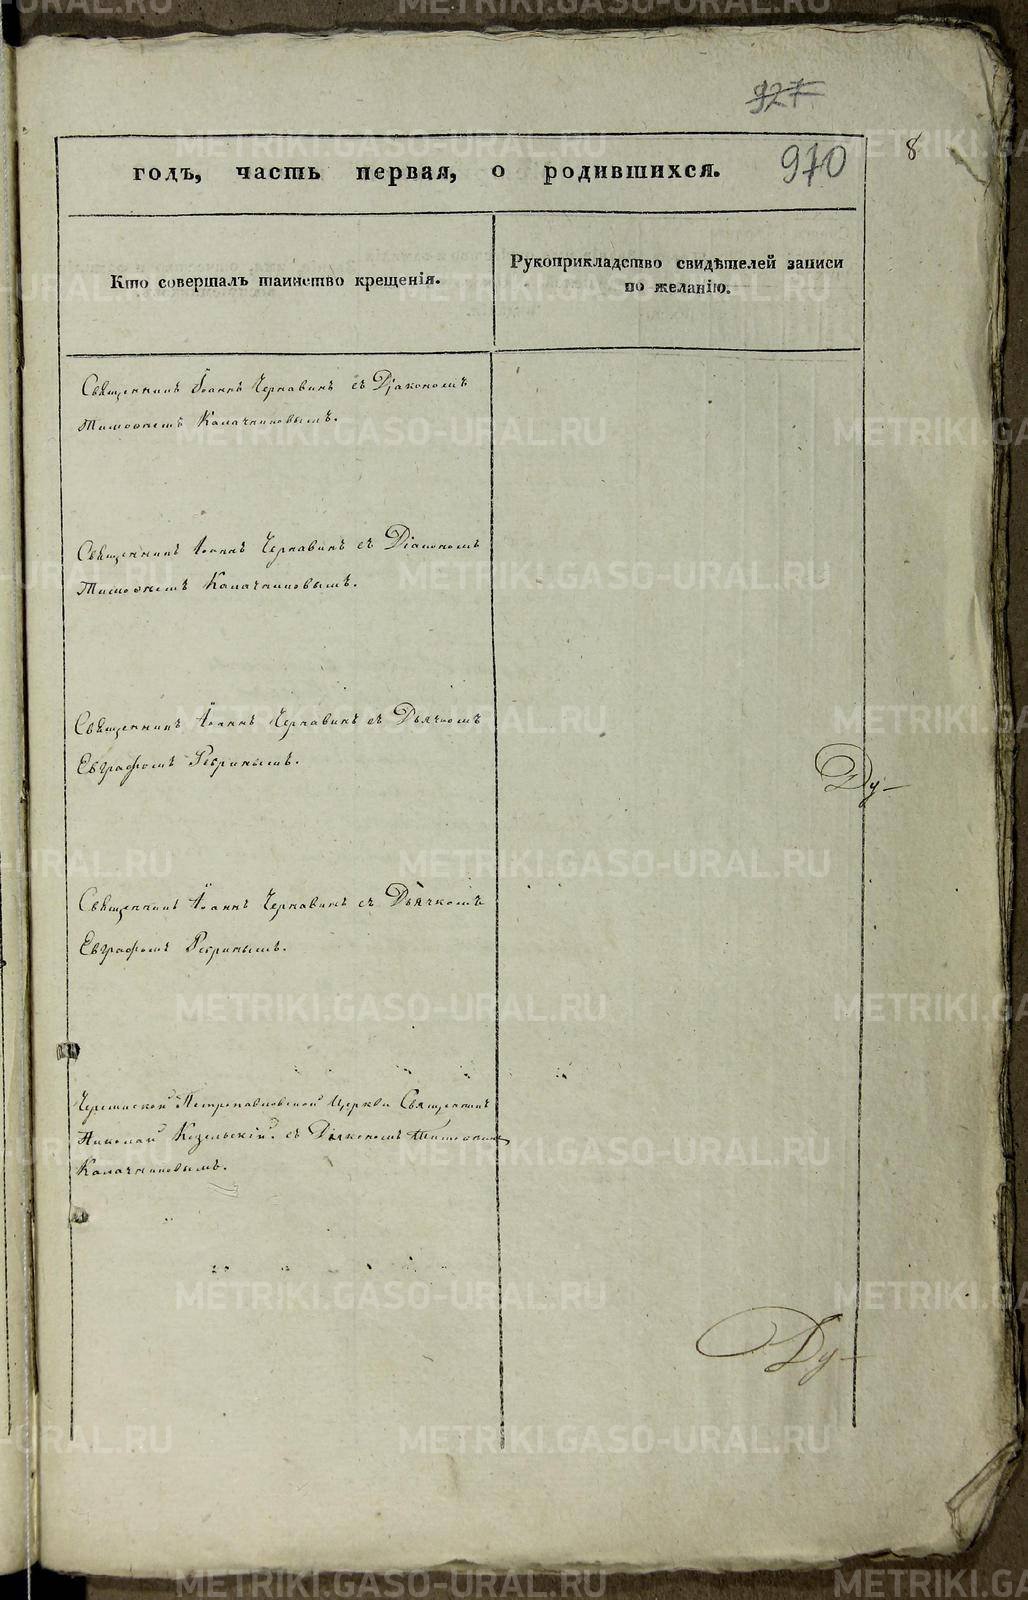 927
970
8
годъ, часть первая, о родившихся.
Кто совершалъ таинство крещенія.
Рукоприкладство свидѣтелей записи
по желанію.
Священникъ Іоаннъ Чернавинъ съ Діакономъ
Тимоѳеемъ Калачниковымъ.
Священникъ Іоаннъ Чернавинъ съ Діакономъ
Тимоѳеемъ Калачниковымъ.
Священникъ Іоаннъ Чернавинъ съ Дьячкомъ
Евграфомъ
Ду
Священникъ Іоаннъ Чернавинъ съ Дьячкомъ
Евграфомъ
Петропавловской Церкви Священникъ
Николай Козельскій съ Діакономъ Тимоѳеемъ
Калачниковымъ.
Ду
METRIKI.GASO-URAL.RU